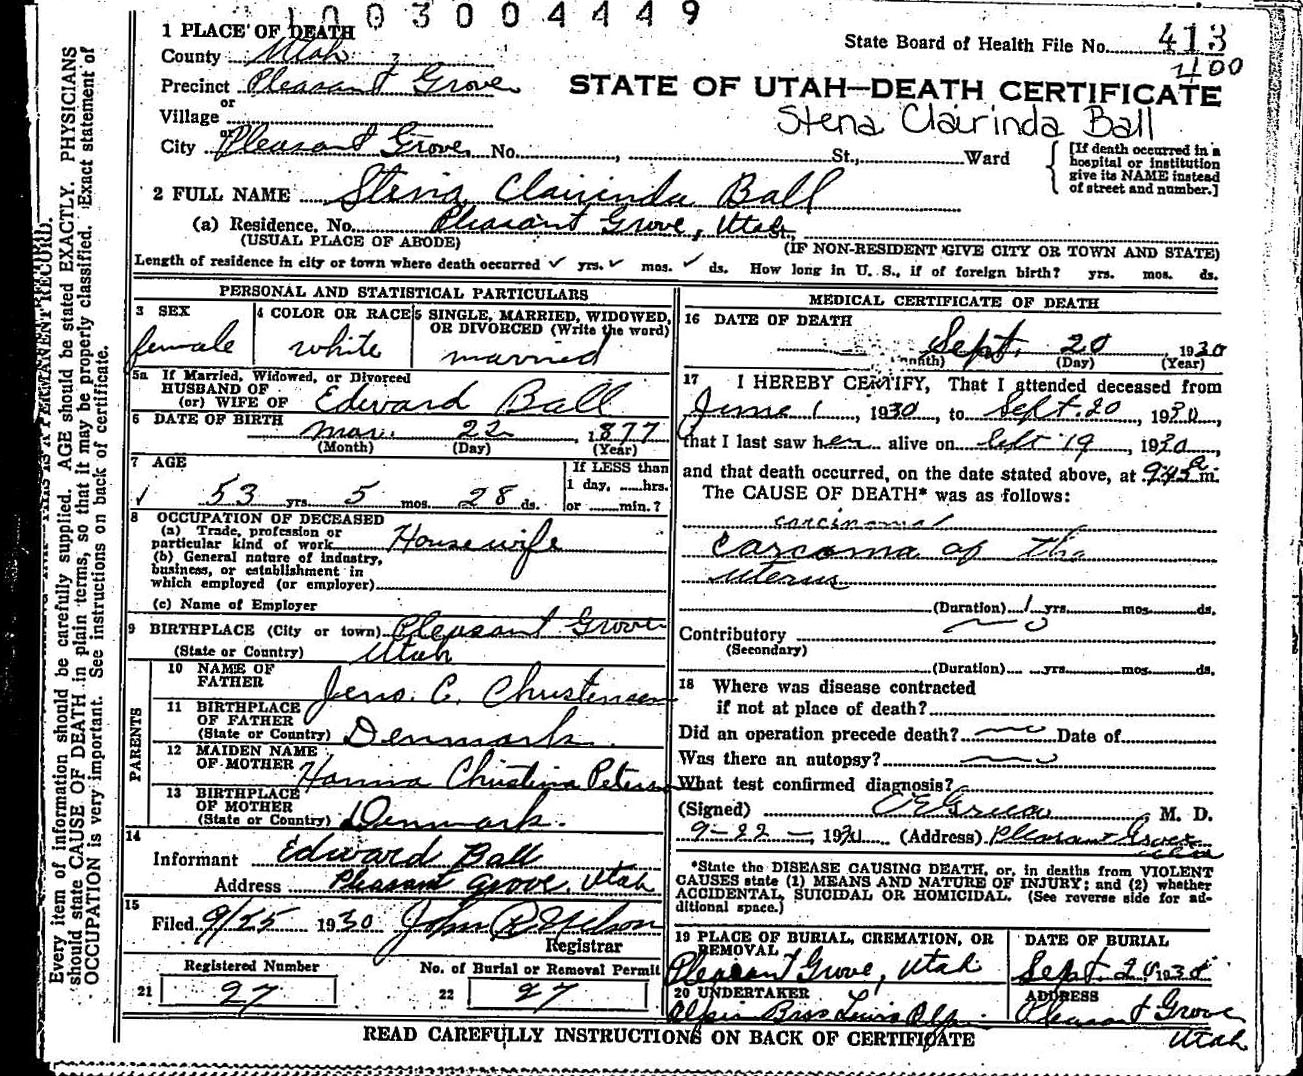 1003004449
State Board of Health File No. 413
400
1 PLACE OF DEATH
County Utah
Precinct Pleasant Grove
STATE OF UTAH—DEATH CERTIFICATE
or
Village
Stena Clairinda Ball
or
City Pleasant Grove No. , St., Ward
[If death occurred in a hospital or institution give its NAME instead of street and number.]
2 FULL NAME Stena Clairinda Ball
(a) Residence. No. Pleasant Grove, Utah St.,
(USUAL PLACE OF ABODE) (IF NON-RESIDENT GIVE CITY OR TOWN AND STATE)
Length of residence in city or town where death occurred ✓ yrs. ✓ mos. ✓ ds. How long in U. S., if of foreign birth? yrs. mos. ds.
PERSONAL AND STATISTICAL PARTICULARS
3 SEX
female
4 COLOR OR RACE
white
5 SINGLE, MARRIED, WIDOWED,
OR DIVORCED (Write the word)
married
5a If Married, Widowed, or Divorced
HUSBAND OF
(or) WIFE OF Edward Ball
6 DATE OF BIRTH
Mar. 22 , 1877
(Month) (Day) (Year)
7 AGE
✓ 53 yrs. 5 mos. 28 ds.
If LESS than
1 day, ......hrs.
or ......min.?
8 OCCUPATION OF DECEASED
(a) Trade, profession or
particular kind of work Housewife
(b) General nature of industry,
business, or establishment in
which employed (or employer)
(c) Name of Employer
9 BIRTHPLACE (City or town) Pleasant Grove
(State or Country) Utah
PARENTS
10 NAME OF
FATHER Jens. C. Christensen
11 BIRTHPLACE
OF FATHER
(State or Country) Denmark
12 MAIDEN NAME
OF MOTHER Hanna Christina Peterson
13 BIRTHPLACE
OF MOTHER
(State or Country) Denmark.
14
Informant Edward Ball
Address Pleasant Grove, Utah
15
Filed 9/25 1930 John R Nelson
Registrar
Registered Number
21 27
No. of Burial or Removal Permit
22 27
MEDICAL CERTIFICATE OF DEATH
16 DATE OF DEATH
Sept. 20 , 1930
(Month) (Day) (Year)
17 I HEREBY CERTIFY, That I attended deceased from
June 1 , 1930, to Sept. 20, 1930,
that I last saw her alive on Sept 19, 1930,
and that death occurred, on the date stated above, at m.
The CAUSE OF DEATH* was as follows:
carcinoma
carcoma of the
uterus
(Duration) 1 yrs. mos. ds.
Contributory
(Secondary)
(Duration) yrs. mos. ds.
18 Where was disease contracted
if not at place of death?
Did an operation precede death? Date of
Was there an autopsy?
What test confirmed diagnosis?
(Signed) M. D.
9-22-, 1930 (Address) Pleasant Grove
*State the DISEASE CAUSING DEATH, or, in deaths from VIOLENT
CAUSES state (1) MEANS AND NATURE OF INJURY; and (2) whether
ACCIDENTAL, SUICIDAL OR HOMICIDAL. (See reverse side for ad-
ditional space.)
19 PLACE OF BURIAL, CREMATION, OR
REMOVAL
Pleasant Grove, Utah
DATE OF BURIAL
Sept. 1930
20 UNDERTAKER
ADDRESS
Pleasant Grove
Utah
READ CAREFULLY INSTRUCTIONS ON BACK OF CERTIFICATE
Every item of information should be carefully supplied. AGE should be stated EXACTLY. PHYSICIANS
should state CAUSE OF DEATH in plain terms, so that it may be properly classified. Exact statement of
OCCUPATION is very important. See instructions on back of certificate.